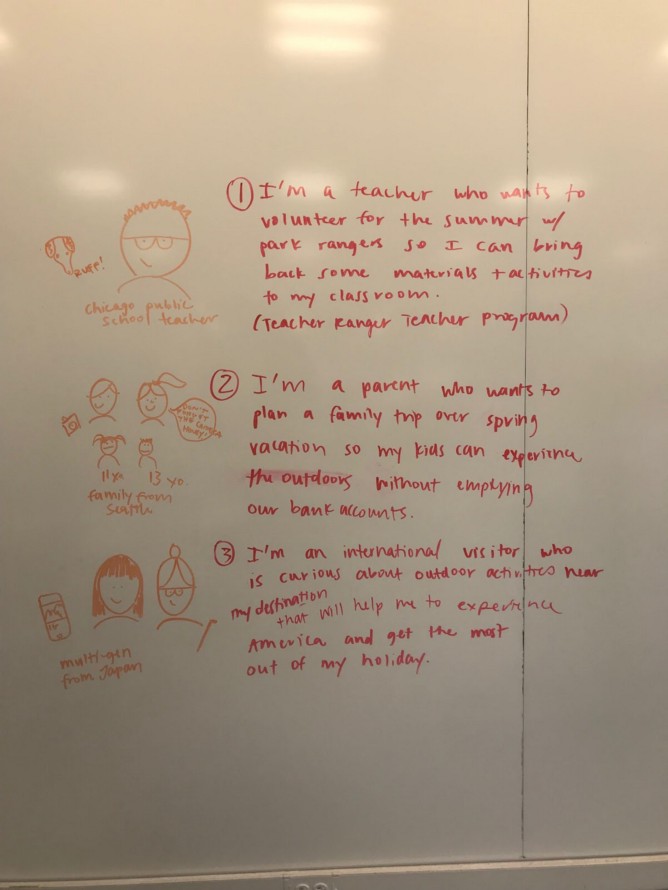 ① I'm a teacher who wants to
volunteer for the summer w/
park rangers so I can bring
back some materials + activities
to my classroom.
(Teacher Ranger Teacher program)
RUFF!
chicago public
school teacher
② I'm a parent who wants to
plan a family trip over spring
vacation so my kids can experience
the outdoors without emptying
our bank accounts.
DON'T
FORGET
THE
HONEY!
11 yo 13 yo.
family from
Seattle
③ I'm an international visitor who
is curious about outdoor activities near
my destination
that will help me to experience
America and get the most
out of my holiday.
multi-gen
from Japan